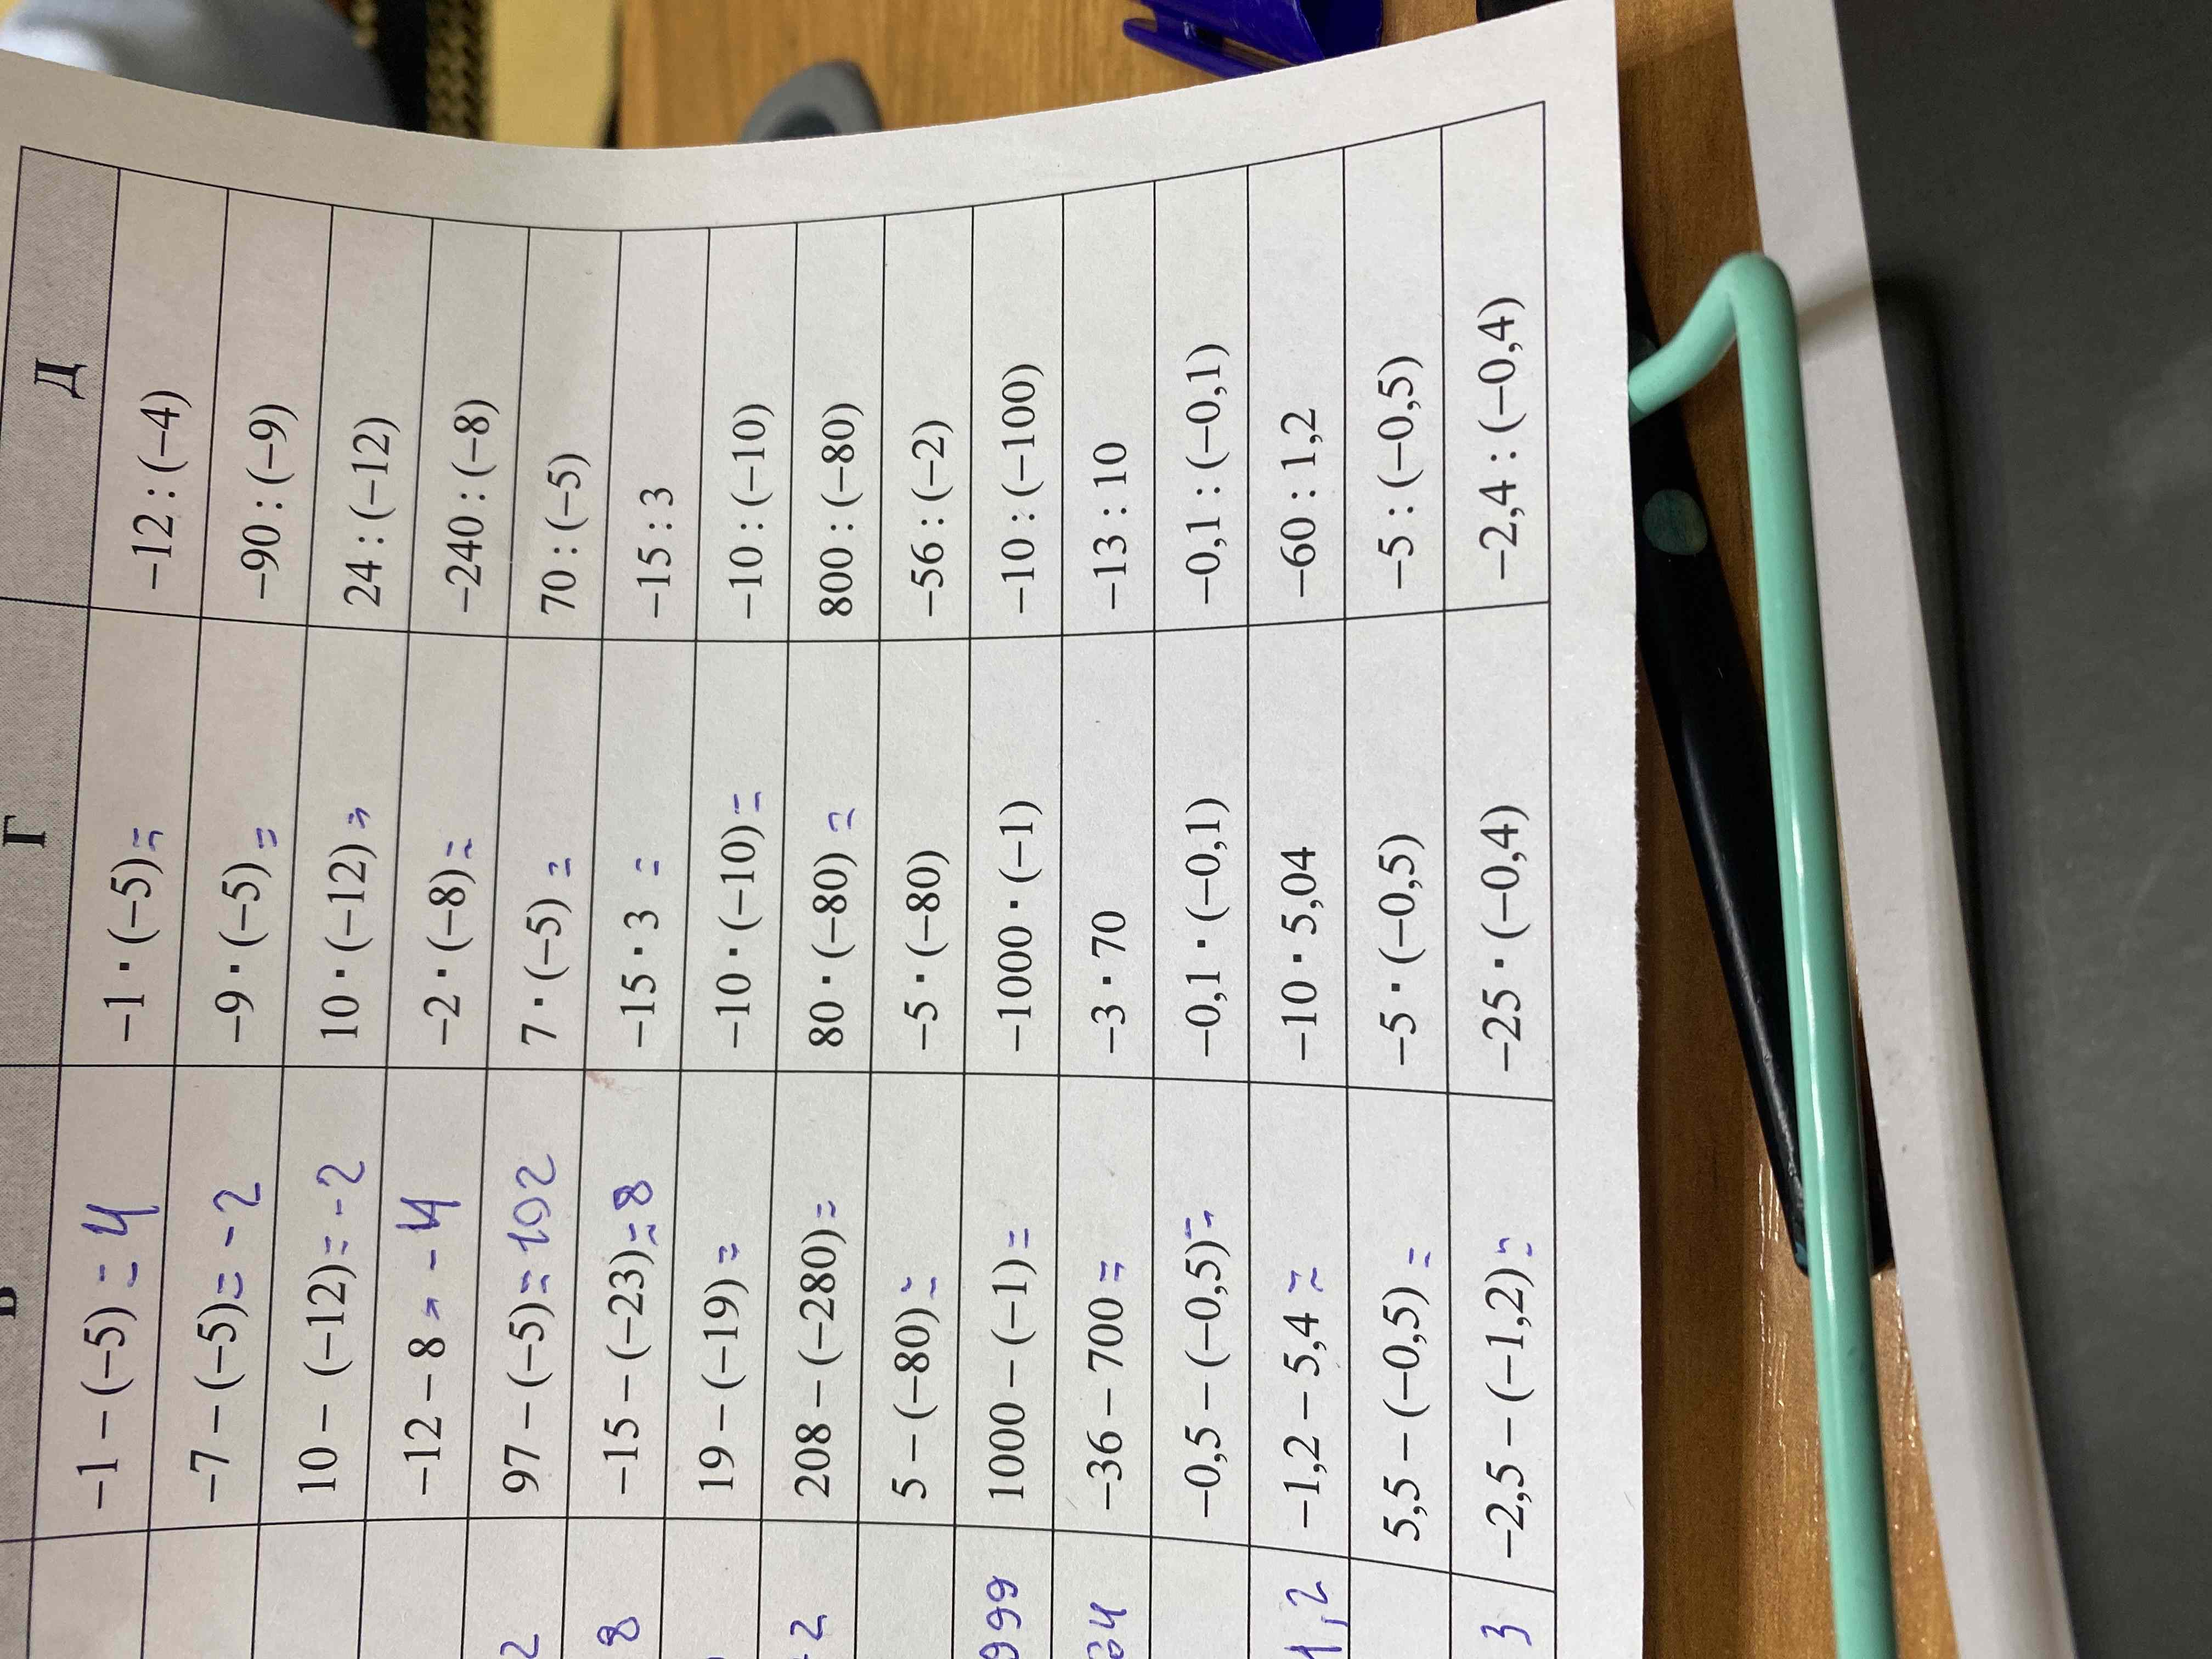 В Г Д
−1 − (−5) = 4 −1 · (−5) = −12 : (−4)
−7 − (−5) = -2 −9 · (−5) = −90 : (−9)
10 − (−12) = -2 10 · (−12) = 24 : (−12)
−12 − 8 = -4 −2 · (−8) = −240 : (−8)
2 97 − (−5) = 102 7 · (−5) = 70 : (−5)
8 −15 − (−23) = 8 −15 · 3 = −15 : 3
19 − (−19) = −10 · (−10) = −10 : (−10)
-2 208 − (−280) = 80 · (−80) = 800 : (−80)
5 − (−80) = −5 · (−80) −56 : (−2)
999 1000 − (−1) = −1000 · (−1) −10 : (−100)
34 −36 − 700 = −3 · 70 −13 : 10
−0,5 − (−0,5) = −0,1 · (−0,1) −0,1 : (−0,1)
1,2 −1,2 − 5,4 = −10 · 5,04 −60 : 1,2
5,5 − (−0,5) = −5 · (−0,5) −5 : (−0,5)
3 −2,5 − (−1,2) = −25 · (−0,4) −2,4 : (−0,4)